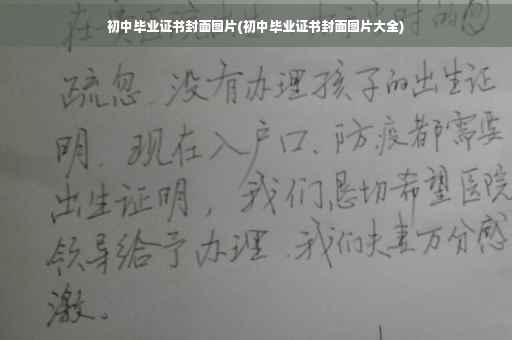 初中毕业证书封面图片(初中毕业证书封面图片大全)
疏忽、没有办理孩子的出生证
明、现在入户口、防疫都需要
出生证明，我们恳切希望医院
领导给予办理、我们夫妻万分感
激。